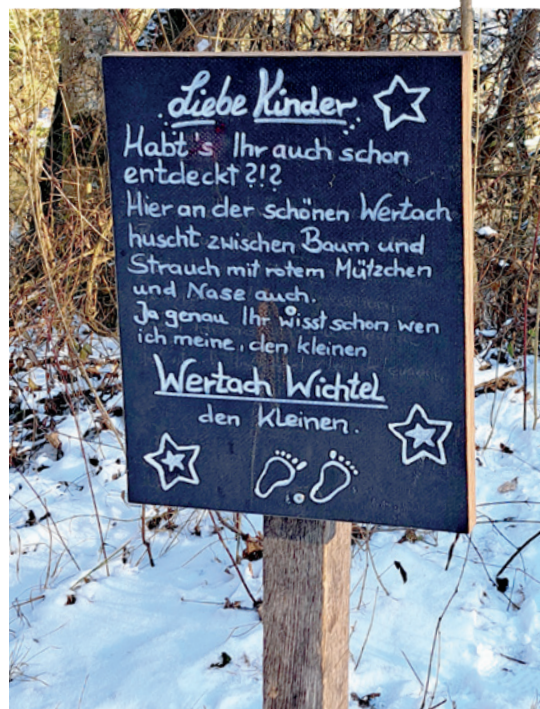 Liebe Kinder
Habt's Ihr auch schon
entdeckt?!?
Hier an der schönen Wertach
huscht zwischen Baum und
Strauch mit rotem Mützchen
und Nase auch.
Ja genau Ihr wisst schon wen
ich meine, den kleinen
Wertach Wichtel
den kleinen.